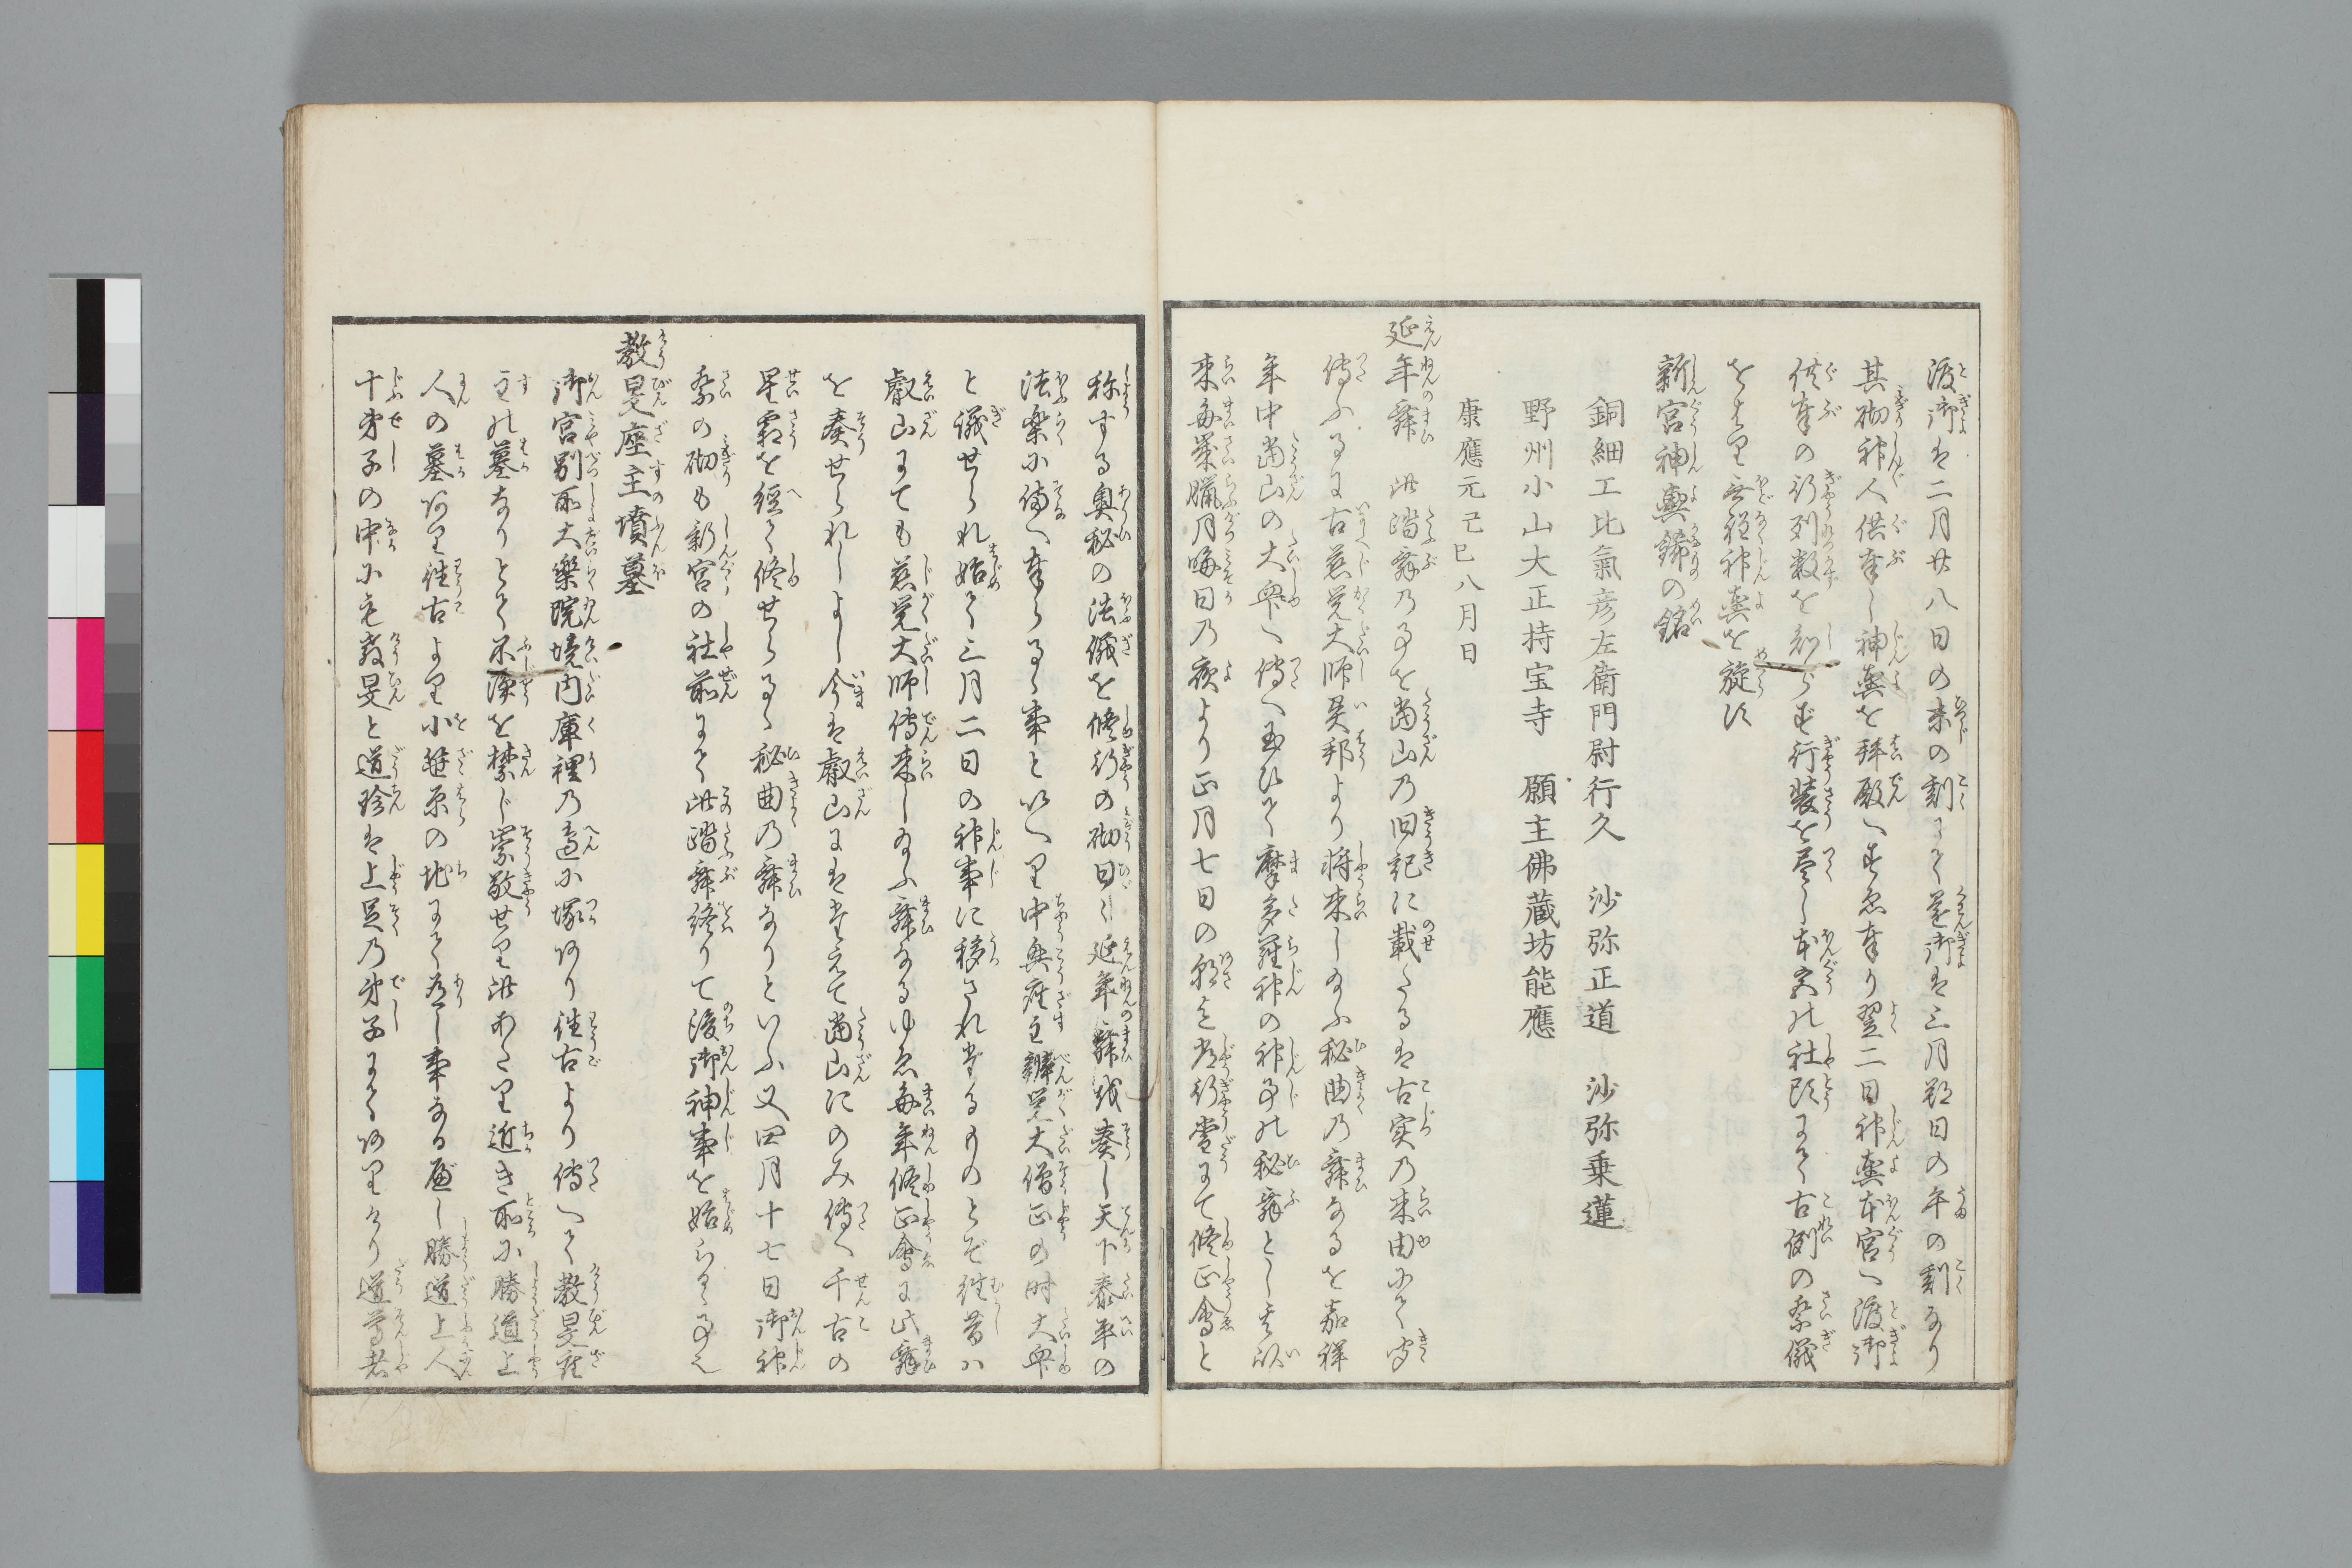 渡御は二月廿八日の未の刻にて還御は三月朔日の午の刻なり
其砌神人供奉し神輿を拝殿へすゑ奉り翌二日神輿本宮へ渡御
供奉の行列数を刻らず行装を尽し本宮の社頭にて古例の祭儀
をはり無程神輿を旋す
新宮神輿錺の銘
銅細工比氣彦左衛門尉行久　沙弥正道　沙弥乗蓮
野州小山大正持宝寺　願主佛蔵坊能應
康應元己巳八月日
延年舞　此踏舞乃事を當山乃旧記に載たるは古実乃来由にて
傳ふるに古慈覚大師異邦より将来し給ふ秘曲乃舞なるを嘉祥
年中當山の大衆へ傳へ玉ひて摩多羅神の神事の秘舞とし夫以
来毎歳臘月晦日乃夜より正月七日の朝迄常行堂にて修正會と
称する奥秘の法儀を修行の砌日々延年舞を奏し天下泰平の
法楽に備へ奉らるゝ事といへり中興座主辨覚大僧正の時大衆
と儀せられ始て三月二日の神事に移されたるものとぞ往昔ハ
叡山にても慈覚大師傳来し給ふ舞なるゆゑ毎年修正會に此舞
を奏せられしよし今は叡山にはたえて當山にのみ傳へ千古の
星霜を經て修せらるゝ秘曲乃舞なりといふ又四月十七日御神
祭の砌も新宮の社前にて此踏舞終りて後御神事を始らるゝ事也
教旻座主墳墓
御宮別所大樂院境内庫裡乃邊に塚あり往古より傳へて教旻座
主の墓なりとて不浄を禁じ崇敬せり此あたり近き所に勝道上
人の墓あり往古より小笹原の地にて有し事なる歴し勝道上人
十弟子の中にも教旻と道珍は上足乃弟子にてありけり道尊者